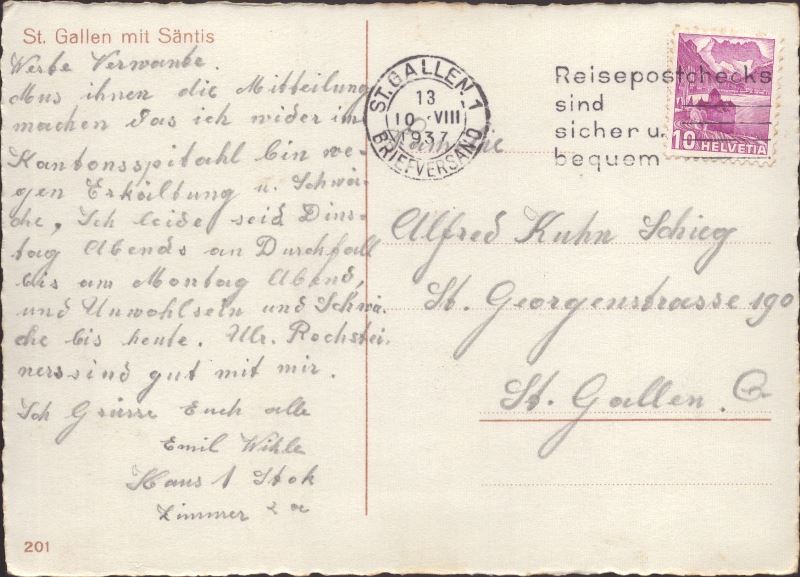 St. Gallen mit Säntis
Werte Verwante.
Mus ihnen die Mitteilung
machen das ich wider im
Kantonsspitahl bin we-
gen Erkältung u. Schwä-
che, Ich leide seid Dins-
tag Abends an Durchfall
bis am Montag Abend,
und Unwohlsein und Schwä-
che bis heute. Ulr. Rochstei-
ners sind gut mit mir.
Ich Grüsse Euch alle
Emil
Haus 1 Stok
Zimmer
201
ST. GALLEN 1
13
10 VIII
1937
BRIEFVERSAND
Reisepostchecks
sind
sicher u.
bequem
10 HELVETIA
Familie
Alfred Kuhn Schieg
St. Georgenstrasse 190
St. Gallen. C